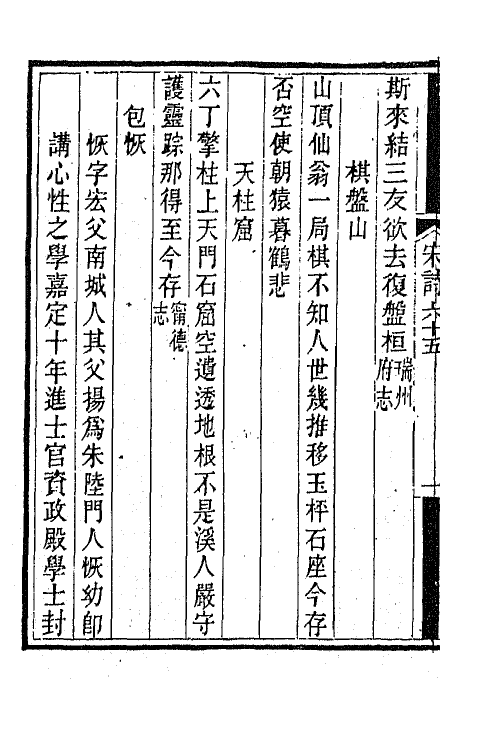 宋詩 六十五
斯來結三友欲去復盤桓瑞州府志
棋盤山
山頂仙翁一局棋不知人世幾推移玉枰石座今存
否空使朝猿暮鶴悲
天柱窟
六丁擎柱上天門石窟空遺透地根不是溪人嚴守
護靈踪那得至今存甯德志
包恢
恢字宏父南城人其父揚爲朱陸門人恢幼卽
講心性之學嘉定十年進士官資政殿學士封